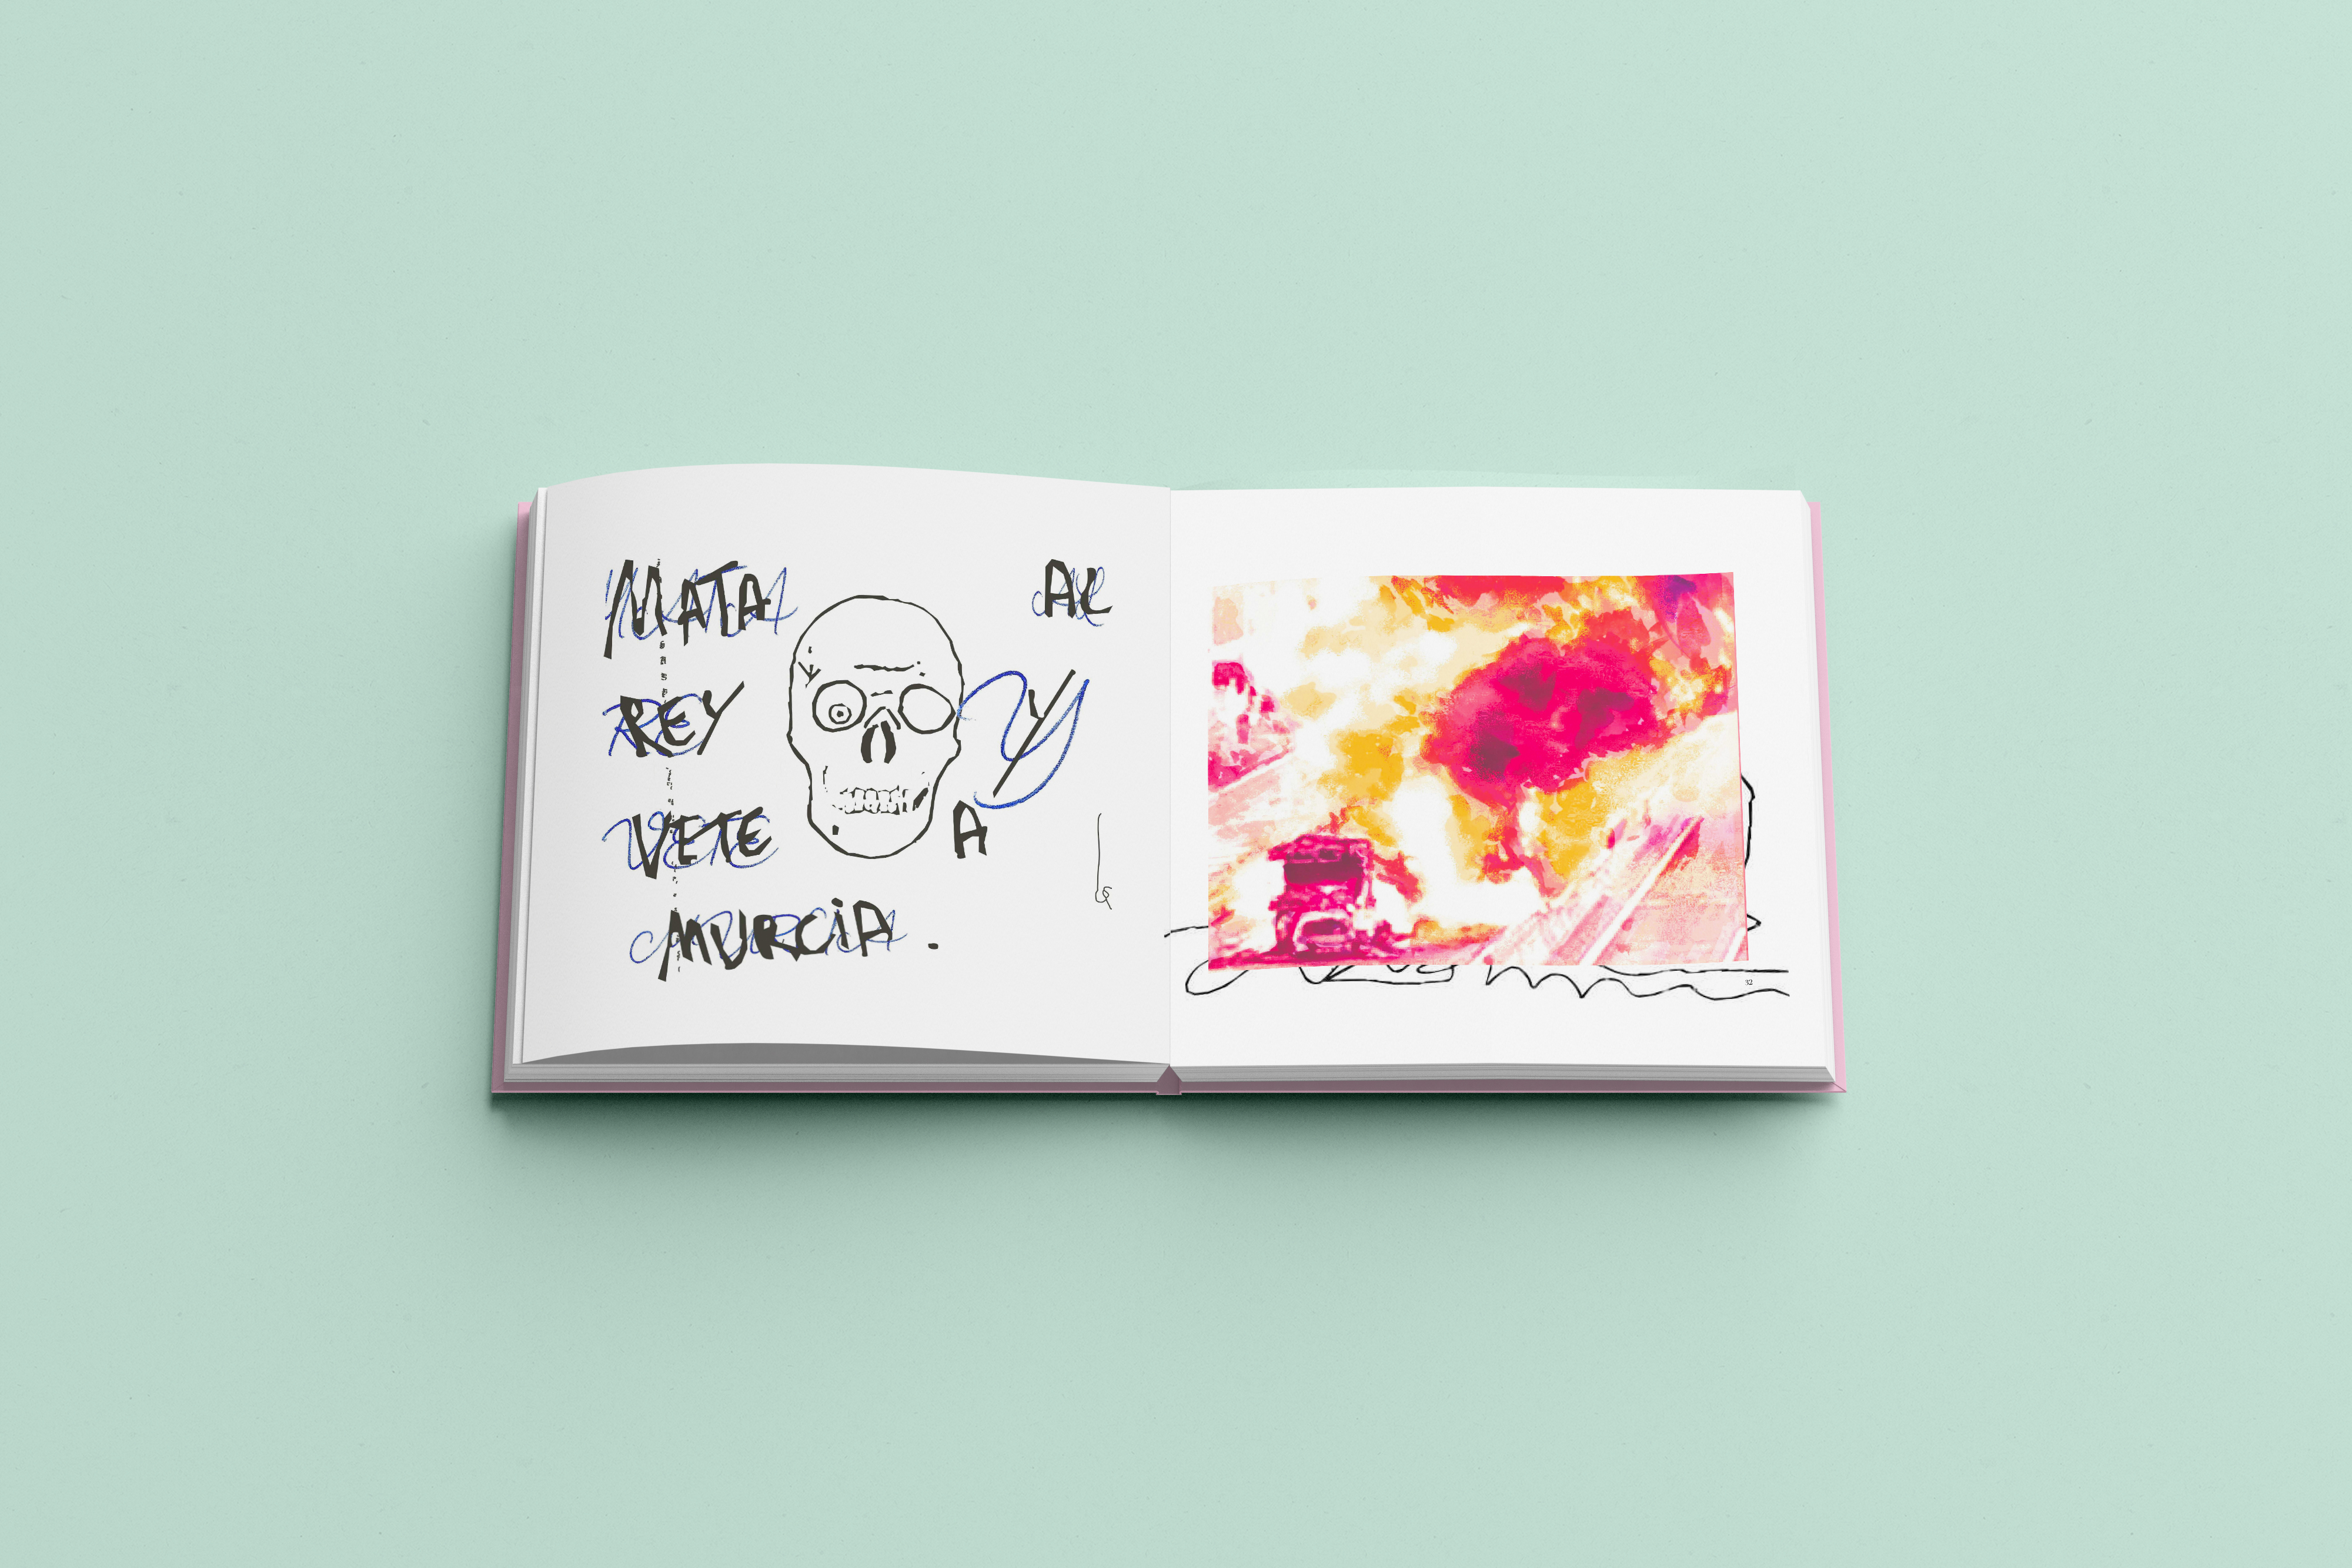 MATA AL
REY Y
VETE A
MURCiA.
32